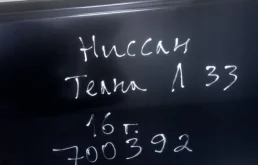 Ниссан
Теана Л 33
16 г.
700392